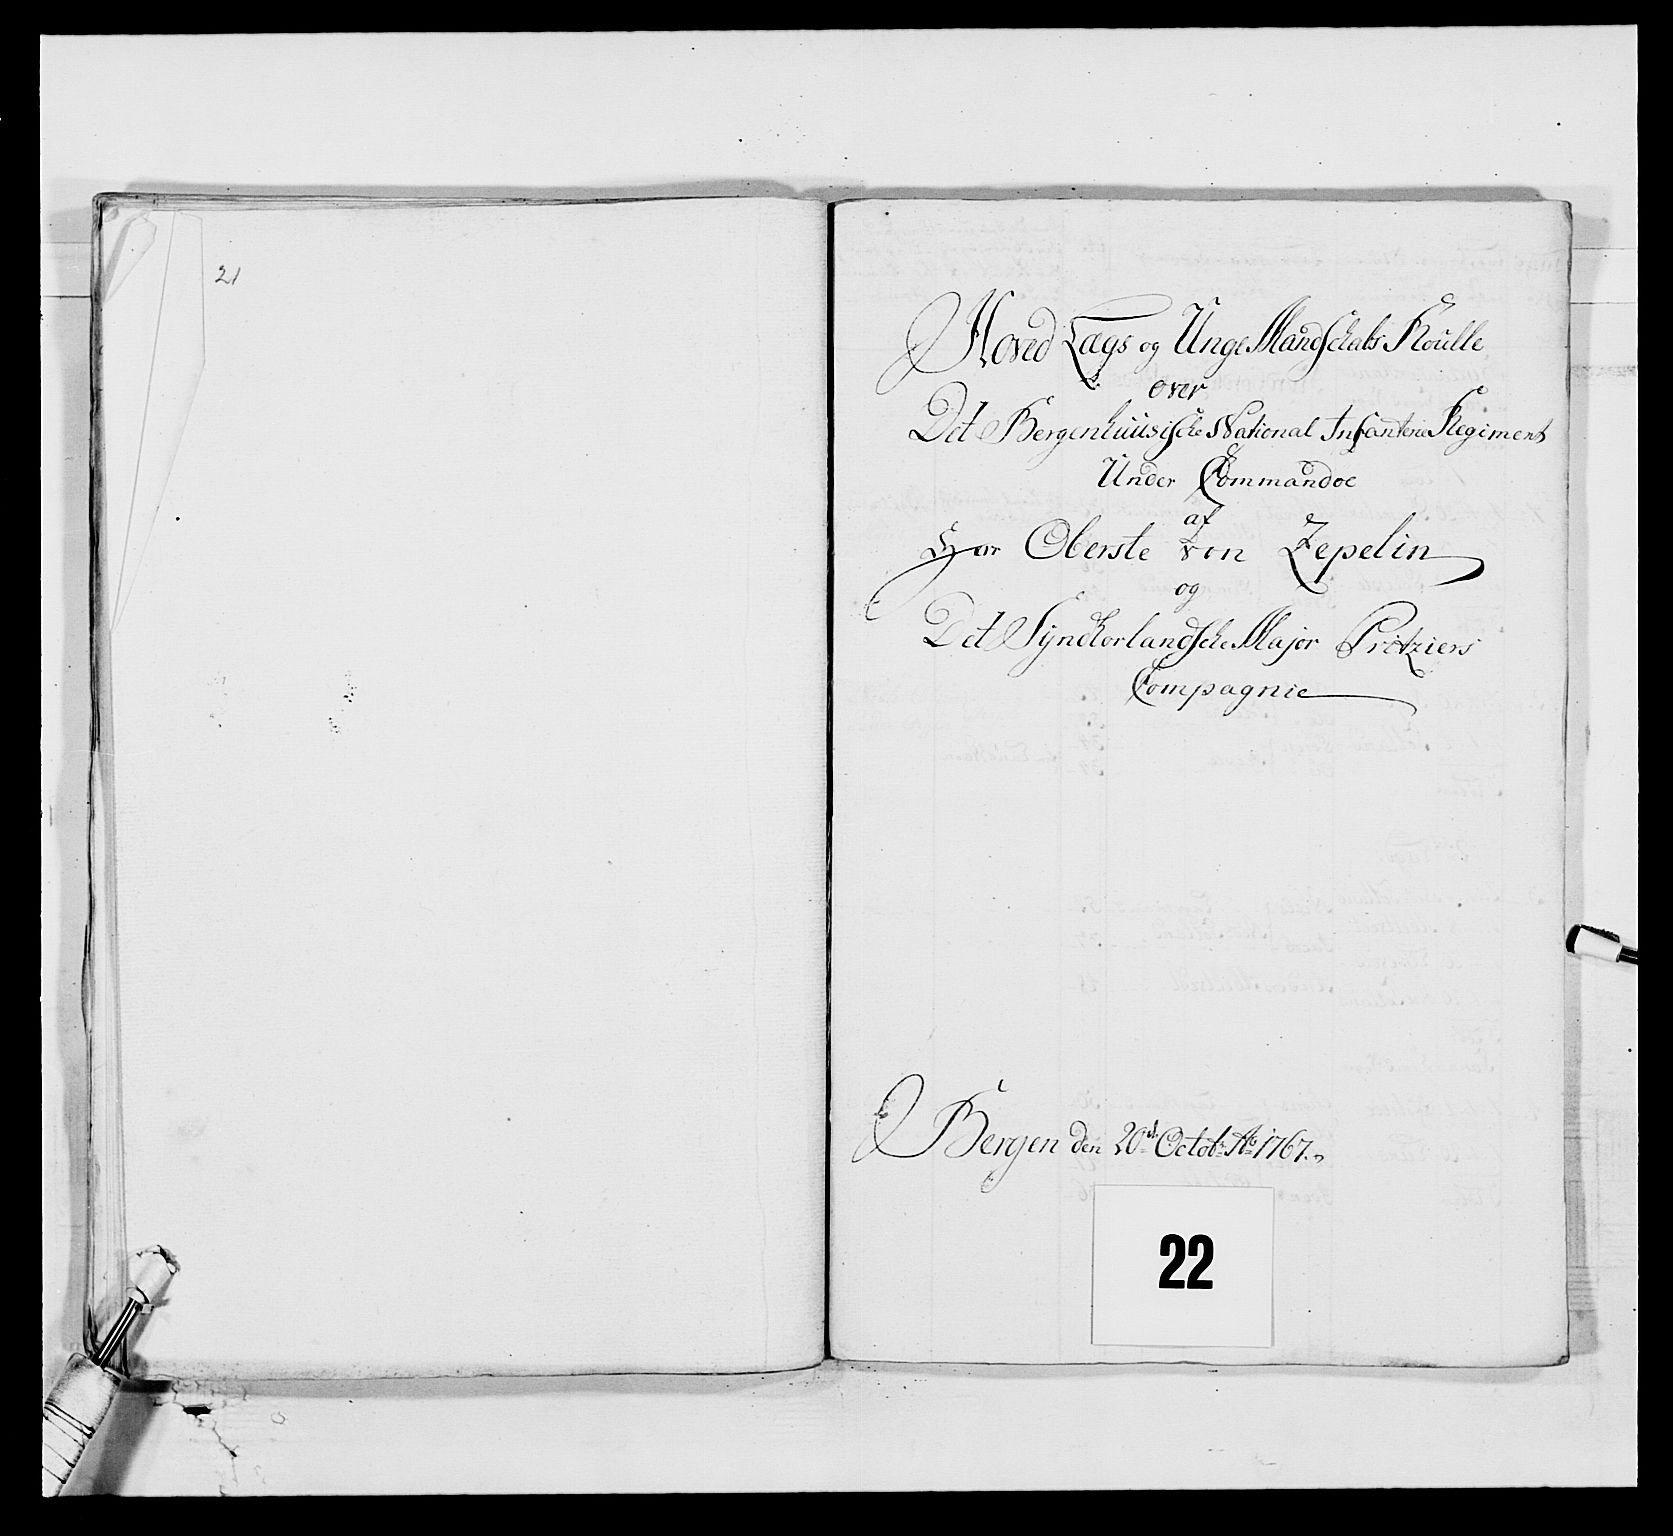 21
Hoved Lægs og Unge Mandskabs Roulle
over
Det Bergenhuusiske National Infanterie Regiment
Under Commandoe
af
Herr Oberste von Zepelin
og
Det Syndhorlandske Major Pritziers
Compagnie
Bergen den 20de Octobr Ao 1767.
22